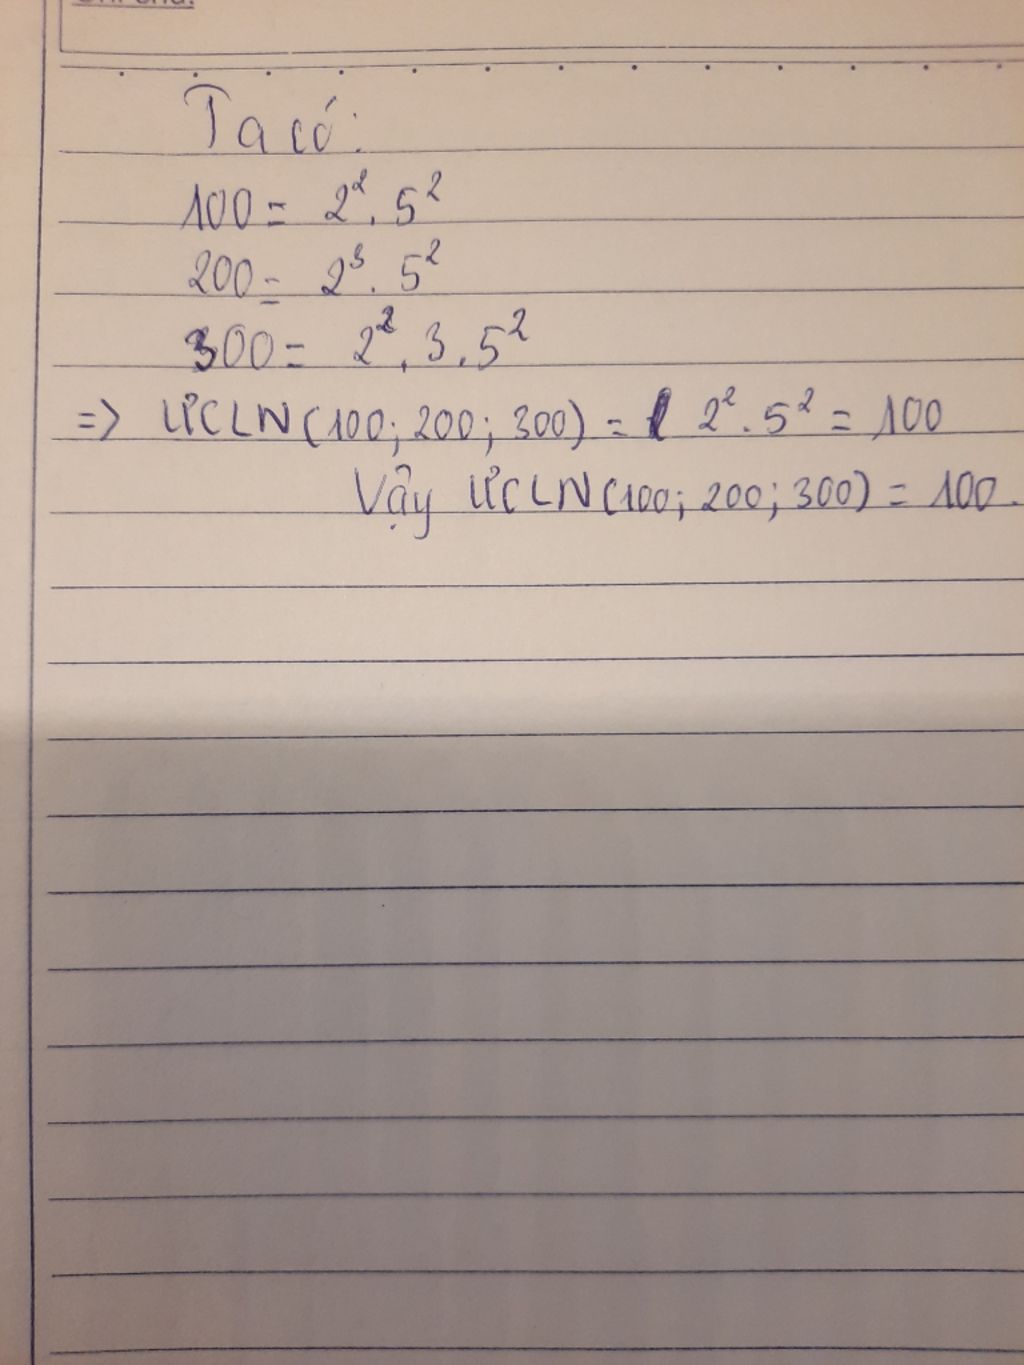 Ta có:
100 = 2². 5²
200 = 2³. 5²
300 = 2². 3. 5²
=> ƯCLN(100; 200; 300) = 2². 5² = 100
Vậy ƯCLN(100; 200; 300) = 100.